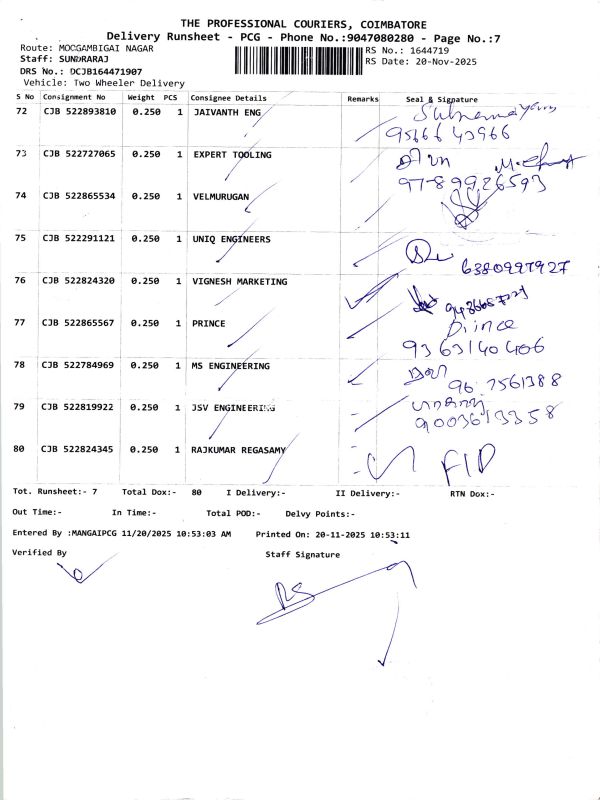 THE PROFESSIONAL COURIERS, COIMBATORE
Delivery Runsheet - PCG - Phone No.:9047080280 - Page No.:7
Route: MOOGAMBIGAI NAGAR RS No.: 1644719
Staff: SUNDRARAJ RS Date: 20-Nov-2025
DRS No.: DCJB164471907
Vehicle: Two Wheeler Delivery
S No Consignment No Weight PCS Consignee Details Remarks Seal & Signature
72 CJB 522893810 0.250 1 JAIVANTH ENG
95666 43966
73 CJB 522727065 0.250 1 EXPERT TOOLING
9789926593
74 CJB 522865534 0.250 1 VELMURUGAN
75 CJB 522291121 0.250 1 UNIQ ENGINEERS
6380997927
76 CJB 522824320 0.250 1 VIGNESH MARKETING
77 CJB 522865567 0.250 1 PRINCE
Prince
9363140406
78 CJB 522784969 0.250 1 MS ENGINEERING
79 CJB 522819922 0.250 1 JSV ENGINEERING
9003613358
80 CJB 522824345 0.250 1 RAJKUMAR REGASAMY
Tot. Runsheet:- 7 Total Dox:- 80 I Delivery:- II Delivery:- RTN Dox:-
Out Time:- In Time:- Total POD:- Delvy Points:-
Entered By :MANGAIPCG 11/20/2025 10:53:03 AM Printed On: 20-11-2025 10:53:11
Verified By Staff Signature